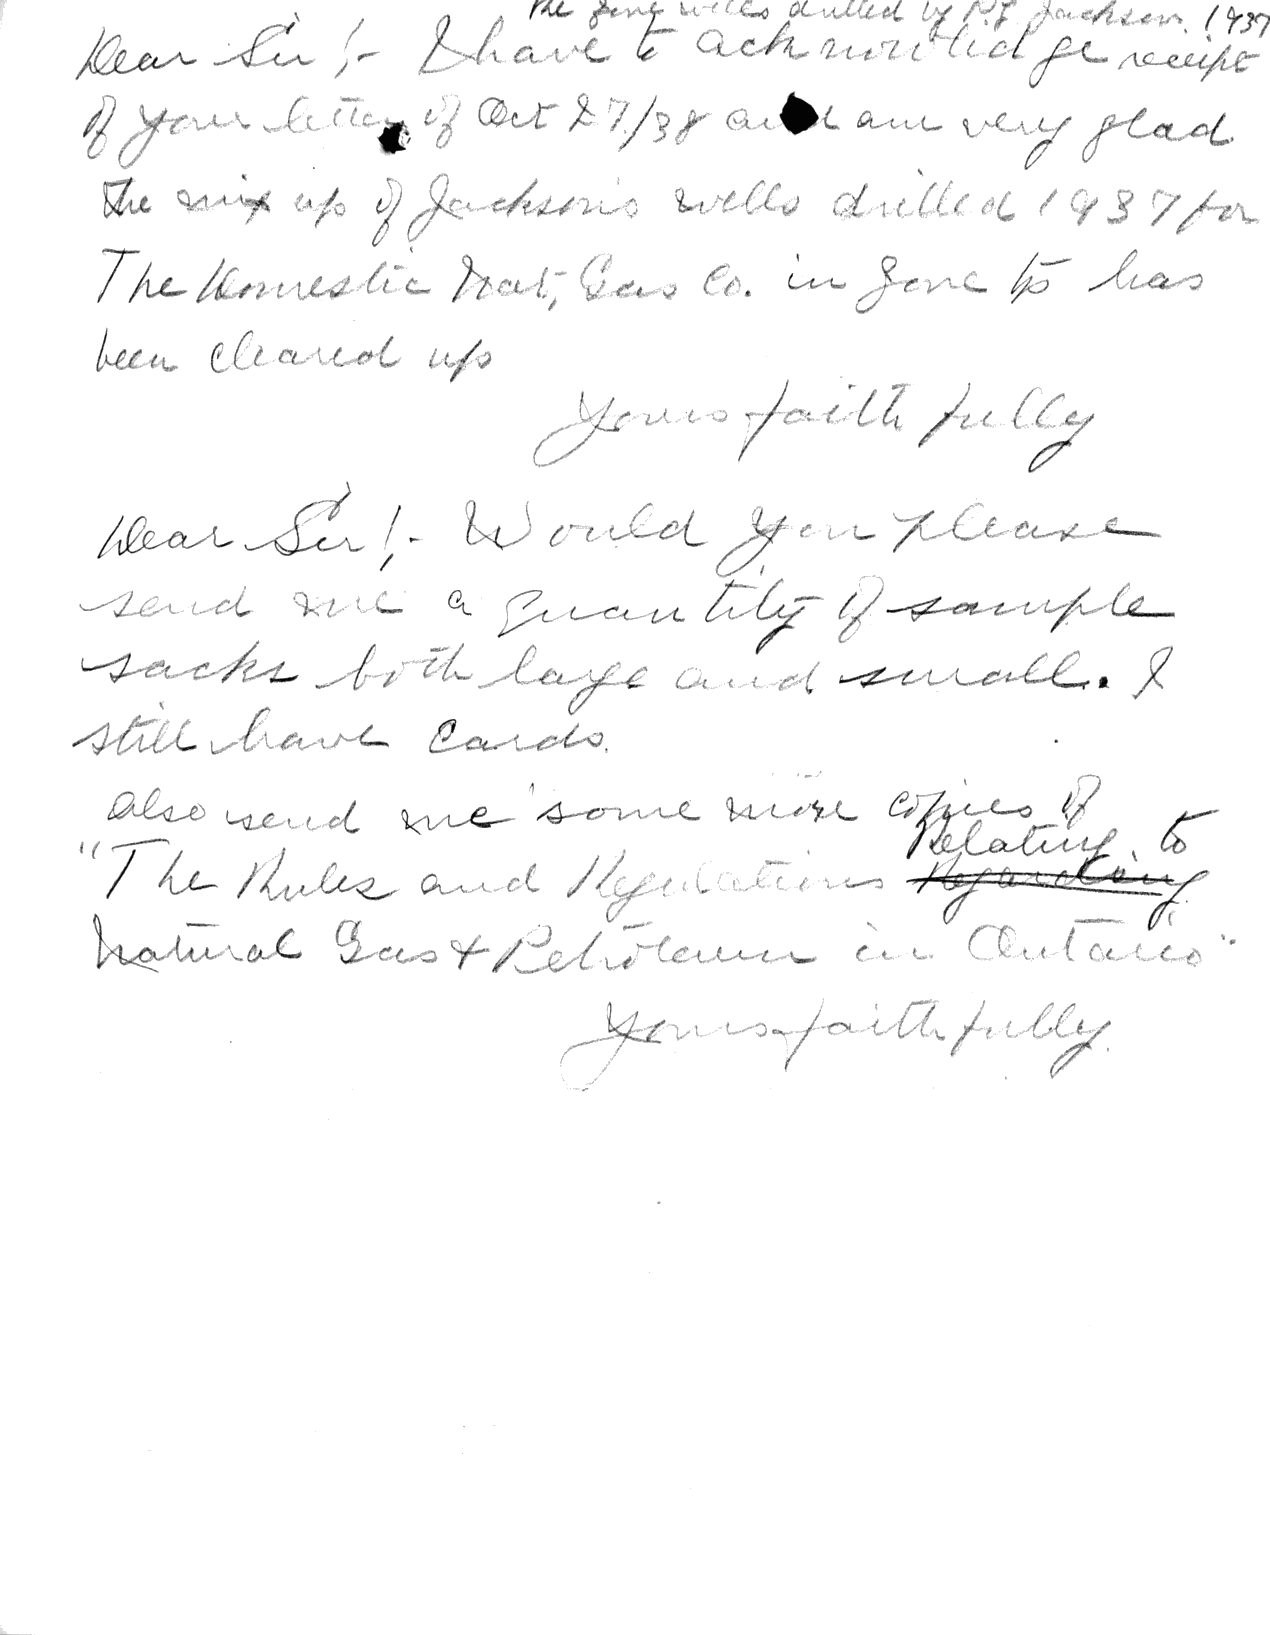 The zone wells drilled by P.J. Jackson. 1937
Dear Sir!- I have to acknowledge receipt
of your letter of Oct 27/38 and am very glad
the mix up of Jackson's wells drilled 1937 for
The Domestic Nat, Gas Co. in zone to has
been cleared up
Yours faithfully
Dear Sir!- Would you please
send me a quantity of sample
sacks both large and small. I
still have cards.
also send me some more copies of
Relating to
"The Rules and Regulations Regarding
Natural Gas & Petroleum in Ontario"
Yours faithfully.